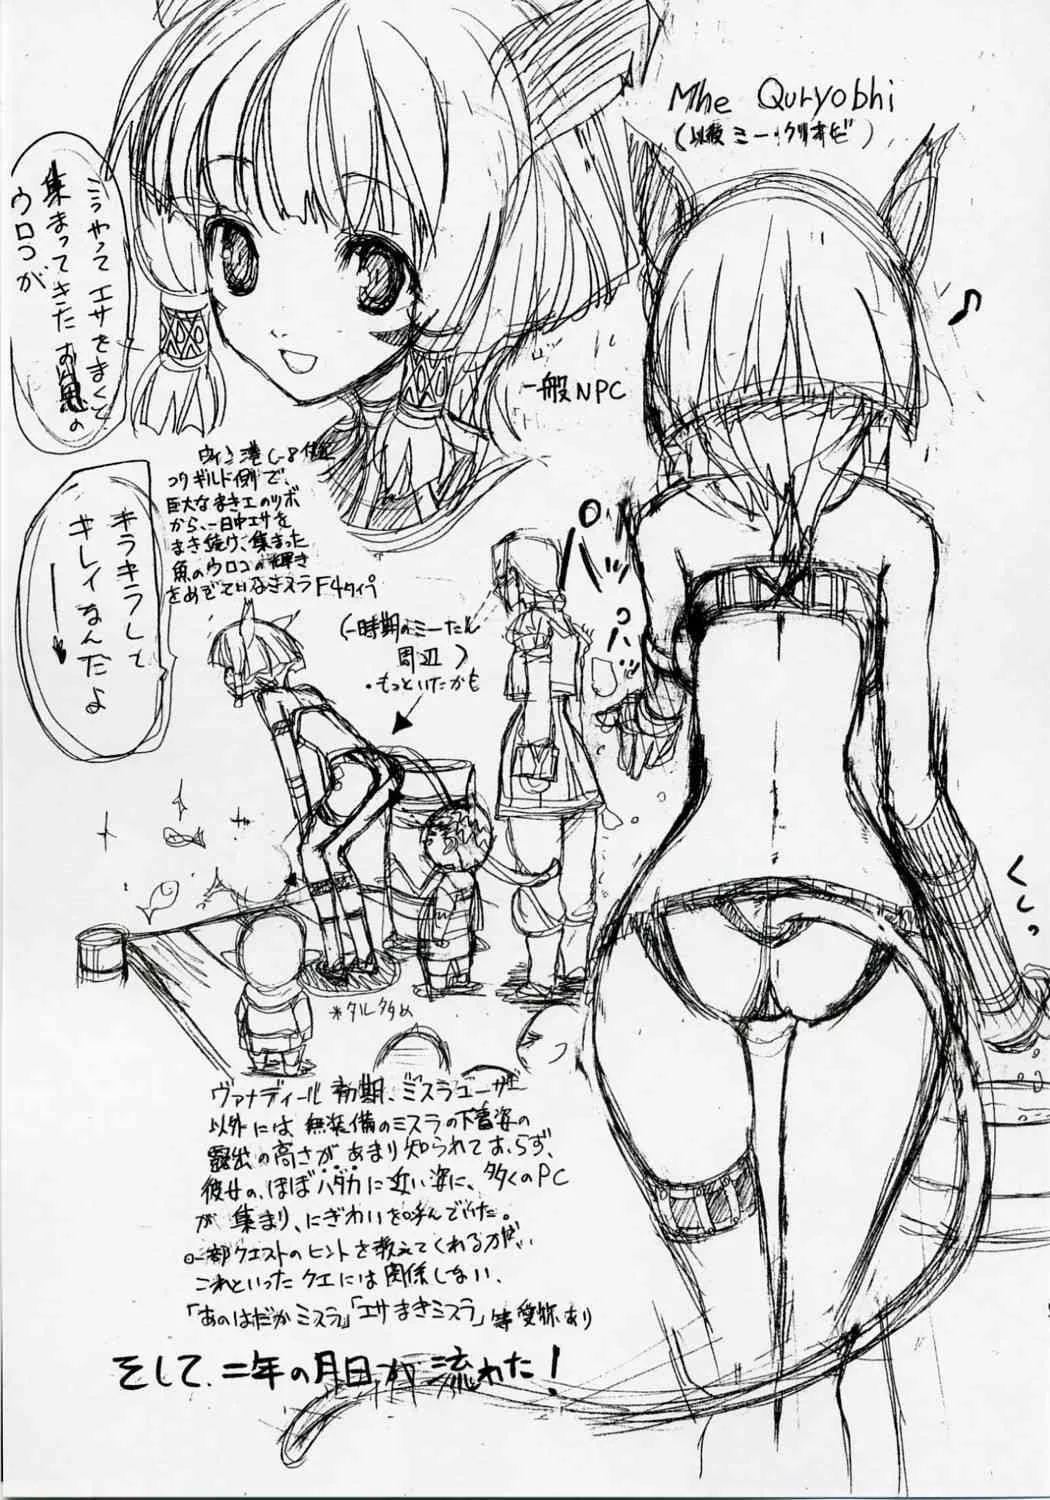 Mhe Quryobhi
(以後 ミー・クリオビ)
こうやって エサをまくて
集まってきた お魚の
ウロコが
一般NPC
コウ ギルド側で、
巨大なまきエのツボ
から、一日中エサを
まき続け、集まった
魚のウロコの輝き
F4タイプ
キラキラして
キレイなんだよ
(一時期のミーたん
周辺)
・もっといたかも
ハッ
くくっ
*タル多め
ヴァナディール 初期、ミスラユーザー
以外には 無装備のミスラの下着姿の
露出の高さが あまり知られておらず、
彼女の、ほぼハダカに近い姿に、多くのPC
が 集まり、にぎわいを呼んでいた。
一部クエストのヒントを教えてくれる方だ
これといった クエには 関係しない、
「あのはだか ミスラ」「エサまきミスラ」等 愛称あり
そして、二年の月日が 流れた!